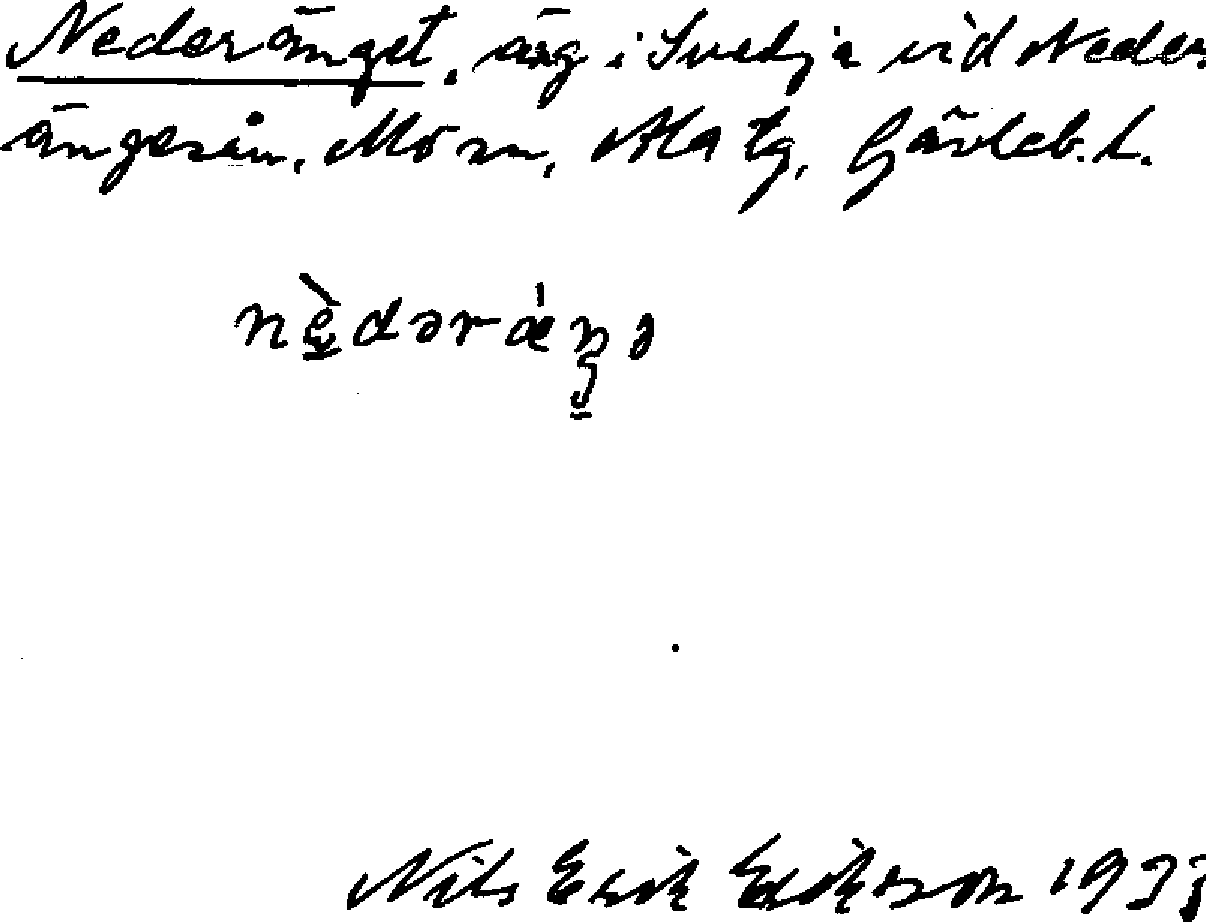 Nederänget, äng i Svedja vid Neder
ängesån, Mo sn, Ala tg, Gävleb. l.
nèdəräŋə
Nils Erik Erikson 1933